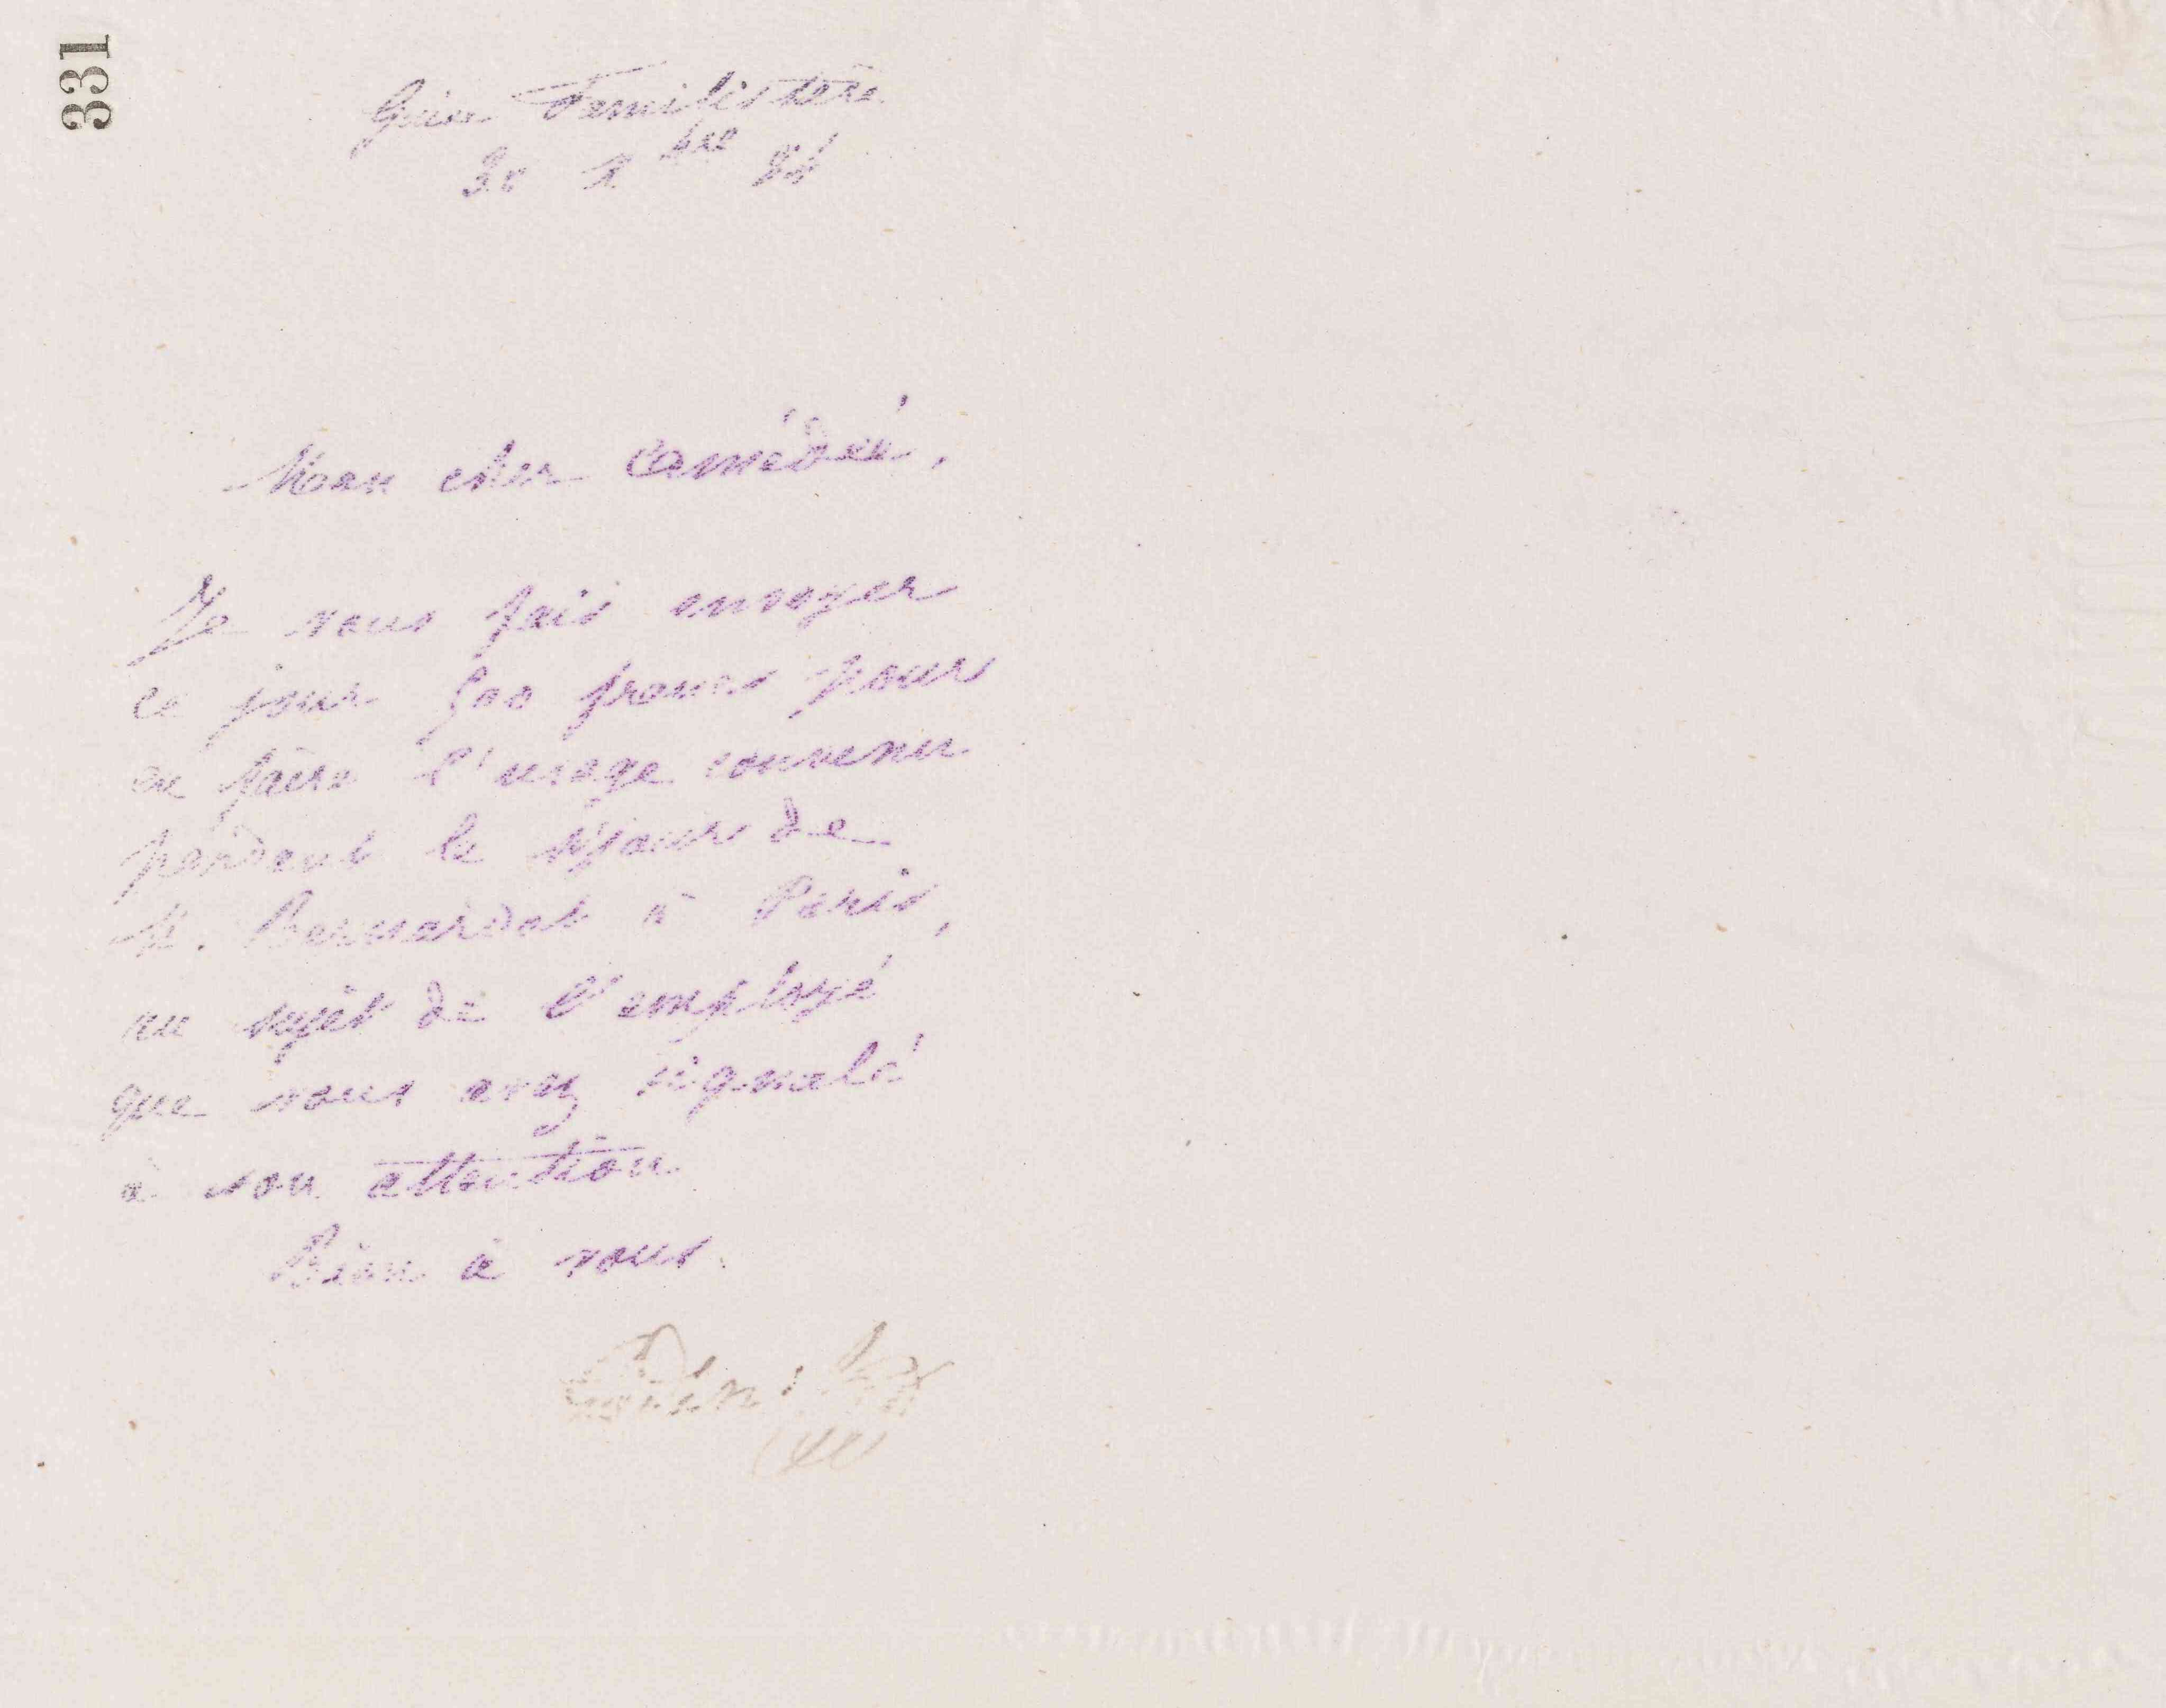 331
Guise Familistère
30 Xbre 86
Mon cher Amédée,
Je vous fais envoyer
ce jour 500 francs pour
en faire l'usage convenu
pendant le séjour de
M. Bernardot à Paris,
au sujet de l'employé
que vous avez signalé
à son attention
Bien à vous.
Godin